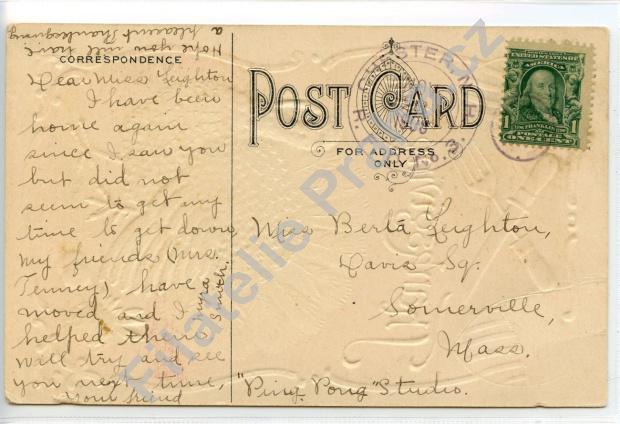 Hope you will have
a pleasant Thanksgiving
CORRESPONDENCE
Dear Miss Leighton
I have been
home again
since I saw you
but did not
seem to get my
time to get down,
my friends (Mrs.
Tenney), have
moved and I
helped them
will try and see
you next time,
Your friend
Smith.
POST CARD
FOR ADDRESS
ONLY
R. 
1908
No. 3.
UNITED STATES OF
AMERICA
1 1
POSTAGE
ONE CENT
Miss Berta Leighton,
Davis Sq.
Somerville,
Mass.
"Ping Pong" Studio.
Filatelie Praga.cz